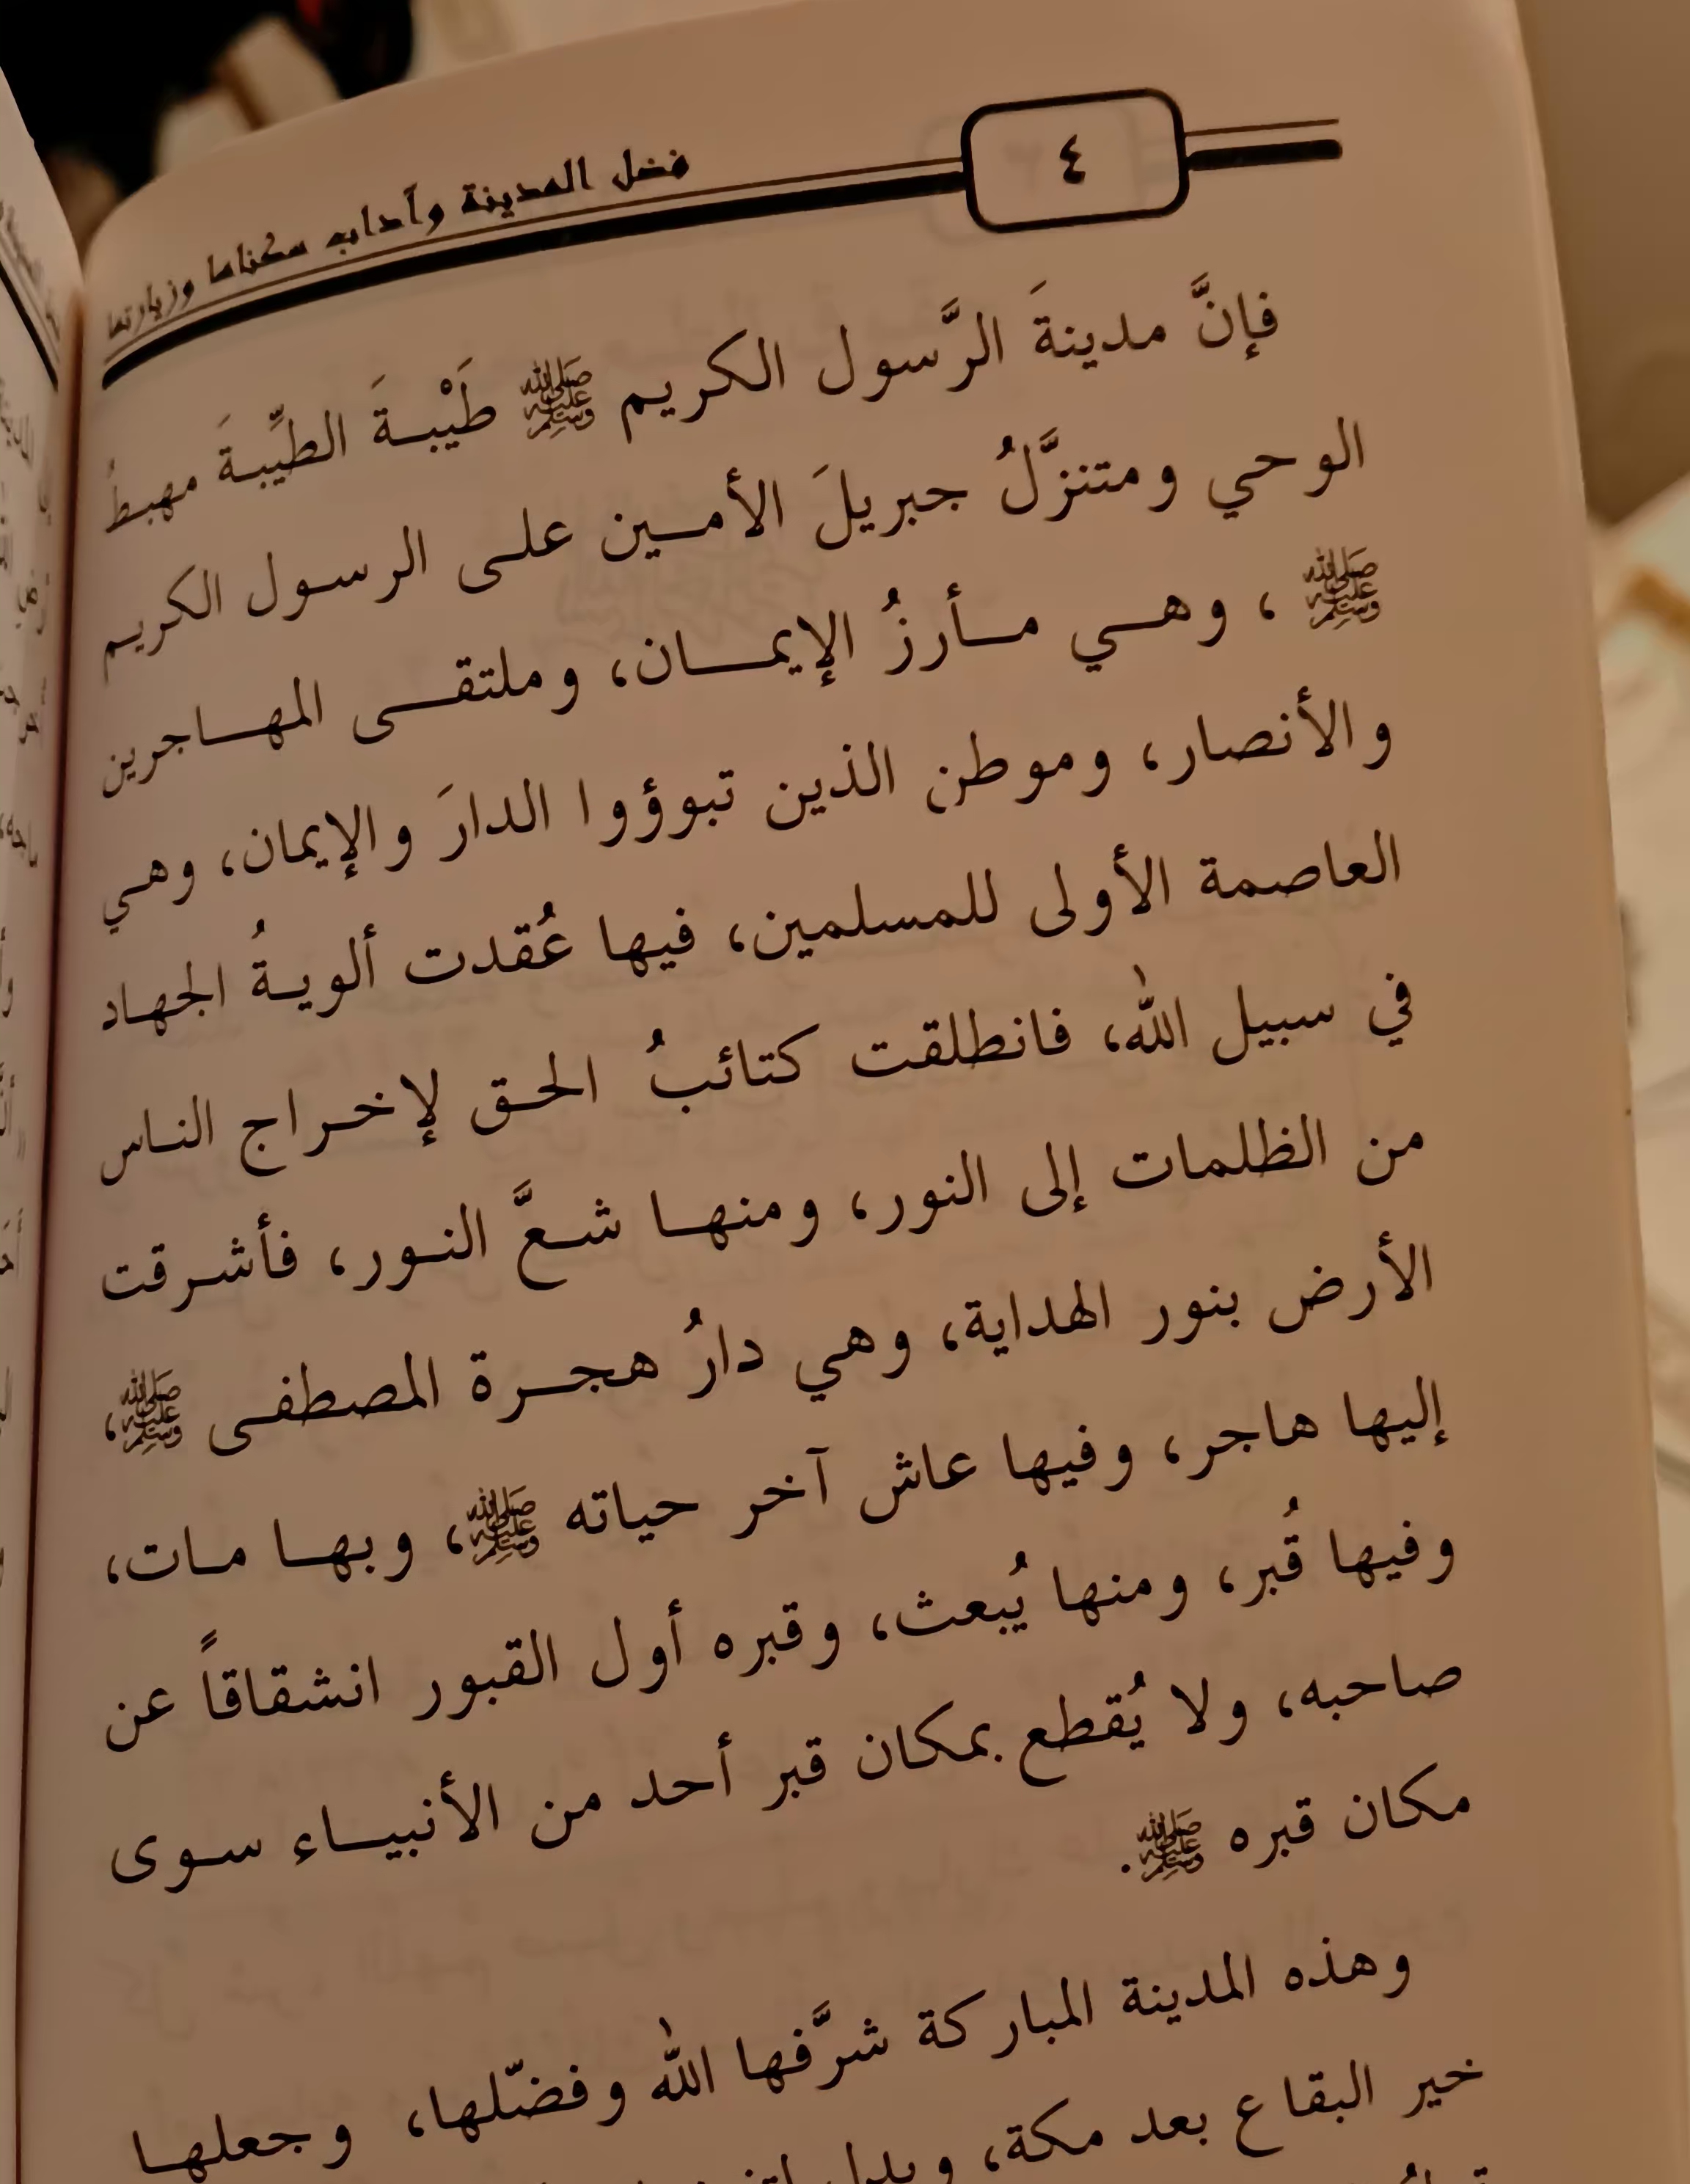 ٤
فضل المدينة وآداب سكناها وزيارتها
فإنَّ مدينةَ الرَّسول الكريم ﷺ طَيْبةَ الطيِّبةَ مهبطُ
الوحي ومتنزَّلُ جبريلَ الأمين على الرسول الكريم
ﷺ، وهي مأرزُ الإيمان، وملتقى المهاجرين
والأنصار، وموطن الذين تبوؤوا الدارَ والإيمان، وهي
العاصمة الأولى للمسلمين، فيها عُقدت ألويةُ الجهاد
في سبيل الله، فانطلقت كتائبُ الحق لإخراج الناس
من الظلمات إلى النور، ومنها شعَّ النور، فأشرقت
الأرض بنور الهداية، وهي دارُ هجرة المصطفى ﷺ،
إليها هاجر، وفيها عاش آخر حياته ﷺ، وبها مات،
وفيها قُبر، ومنها يُبعث، وقبره أول القبور انشقاقاً عن
صاحبه، ولا يُقطع بمكان قبر أحد من الأنبياء سوى
مكان قبره ﷺ.
وهذه المدينة المباركة شرَّفها الله وفضّلها، وجعلها
خير البقاع بعد مكة،